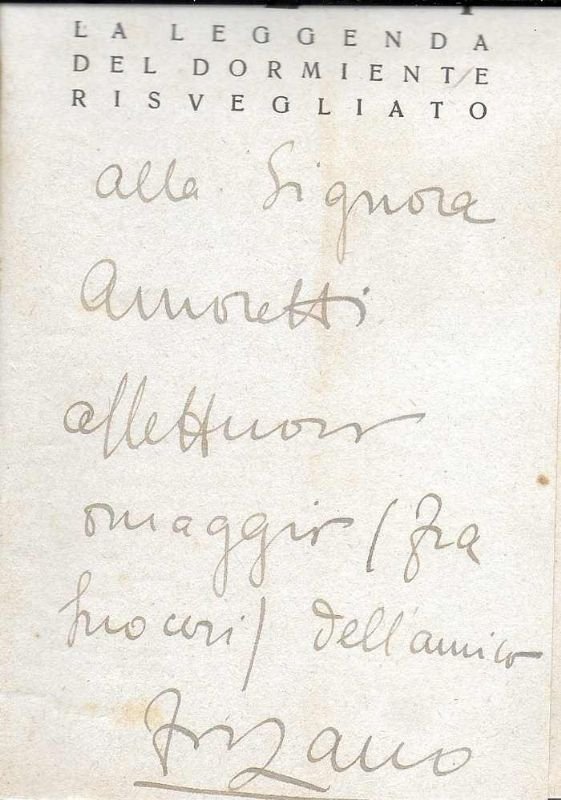 LA LEGGENDA
DEL DORMIENTE
RISVEGLIATO
alla Signora
Amoretti
affettuoso
omaggio (fra
dell'amico